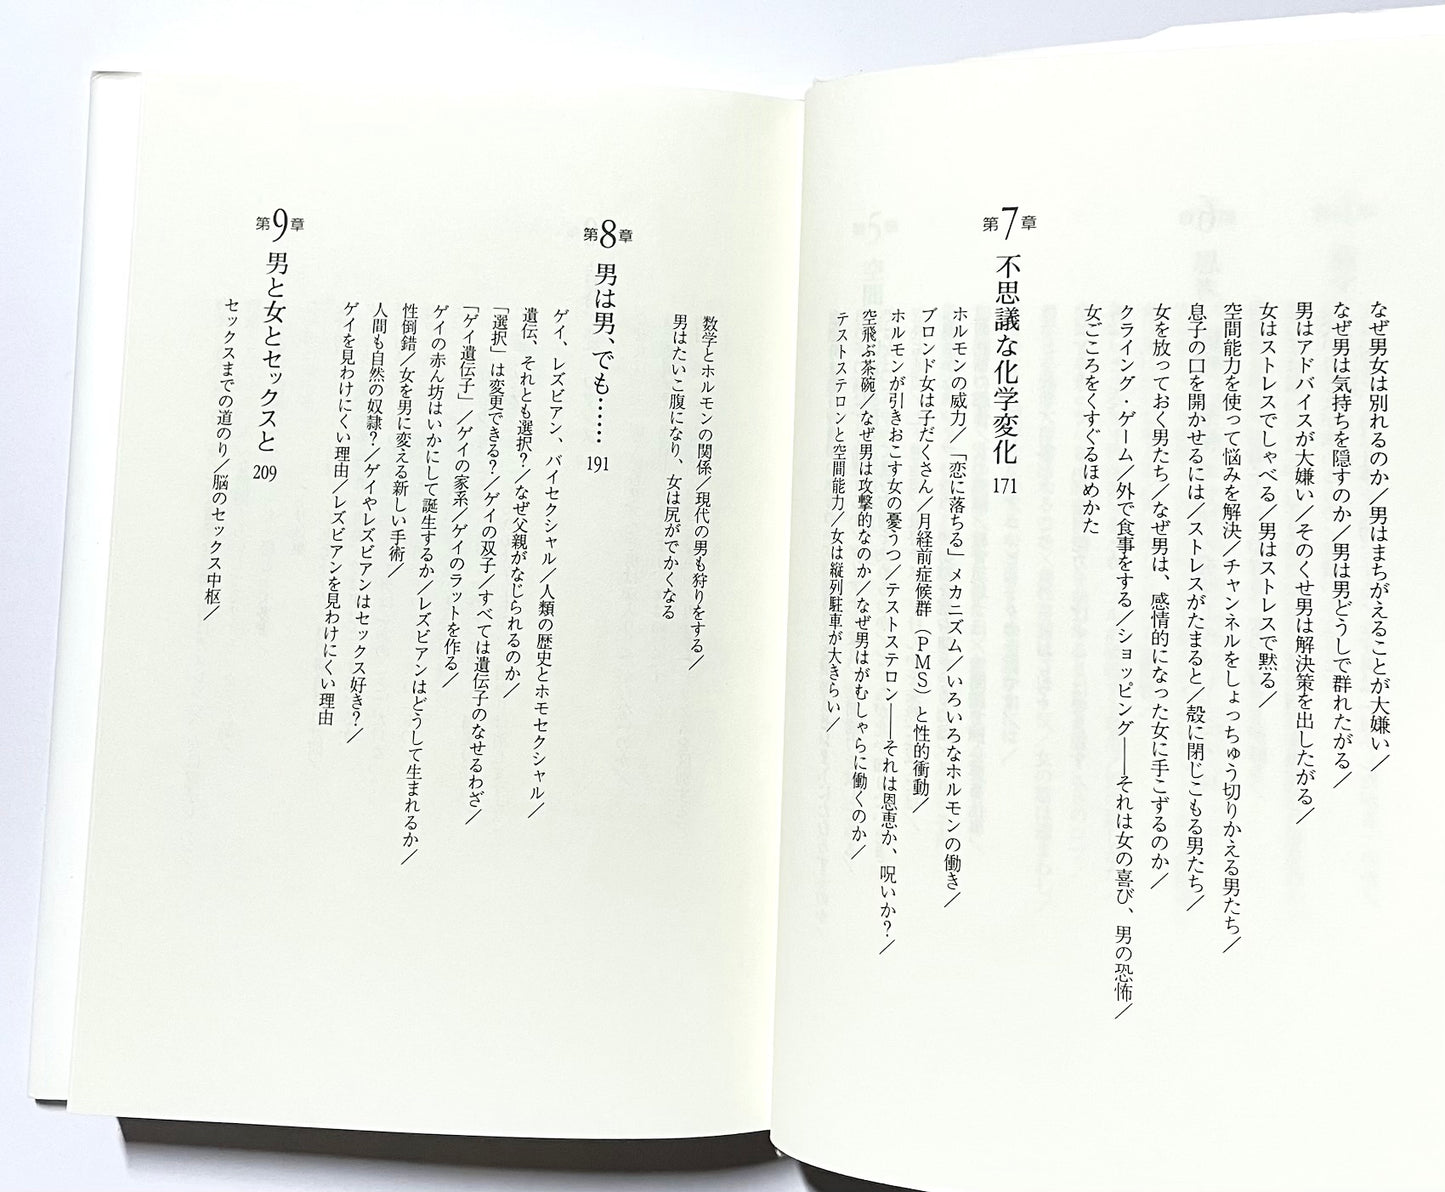 なぜ男女は別れるのか／男はまちがえることが大嫌い／
なぜ男は気持ちを隠すのか／男は男どうしで群れたがる／
男はアドバイスが大嫌い／そのくせ男は解決策を出したがる／
女はストレスでしゃべる／男はストレスで黙る／
空間能力を使って悩みを解決／チャンネルをしょっちゅう切りかえる男たち／
息子の口を開かせるには／ストレスがたまると／殻に閉じこもる男たち／
女を放っておく男たち／なぜ男は、感情的になった女に手こずるのか／
クライング・ゲーム／外で食事をする／ショッピング――それは女の喜び、男の恐怖／
女ごころをくすぐるほめかた
第7章 不思議な化学変化 171
ホルモンの威力／「恋に落ちる」メカニズム／いろいろなホルモンの働き／
ブロンド女は子だくさん／月経前症候群（PMS）と性的衝動／
ホルモンが引きおこす女の憂うつ／テストステロン――それは恩恵か、呪いか？／
空飛ぶ茶碗／なぜ男は攻撃的なのか／なぜ男はがむしゃらに働くのか／
テストステロンと空間能力／女は縦列駐車が大きらい／
数学とホルモンの関係／現代の男も狩りをする／
男はたいこ腹になり、女は尻がでかくなる
第8章 男は男、でも…… 191
ゲイ、レズビアン、バイセクシャル／人類の歴史とホモセクシャル／
遺伝、それとも選択？／なぜ父親がなじられるのか／
「選択」は変更できる？／ゲイの双子／すべては遺伝子のなせるわざ／
「ゲイ遺伝子」／ゲイの家系／ゲイのラットを作る／
ゲイの赤ん坊はいかにして誕生するか／レズビアンはどうして生まれるか／
性倒錯／女を男に変える新しい手術／
人間も自然の奴隷？／ゲイやレズビアンはセックス好き？／
ゲイを見わけにくい理由／レズビアンを見わけにくい理由
第9章 男と女とセックスと 209
セックスまでの道のり／脳のセックス中枢／